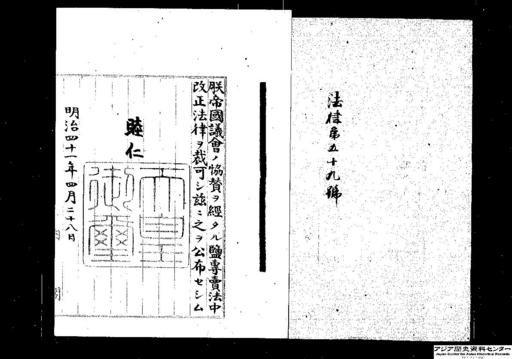 法律第五十九號
朕帝國議會ノ協贊ヲ經タル鹽專賣法中
改正法律ヲ裁可シ玆ニ之ヲ公布セシム
睦仁
天皇
御璽
明治四十一年四月二十八日
内閣
アジア歴史資料センター
Japan Center for Asian Historical Records